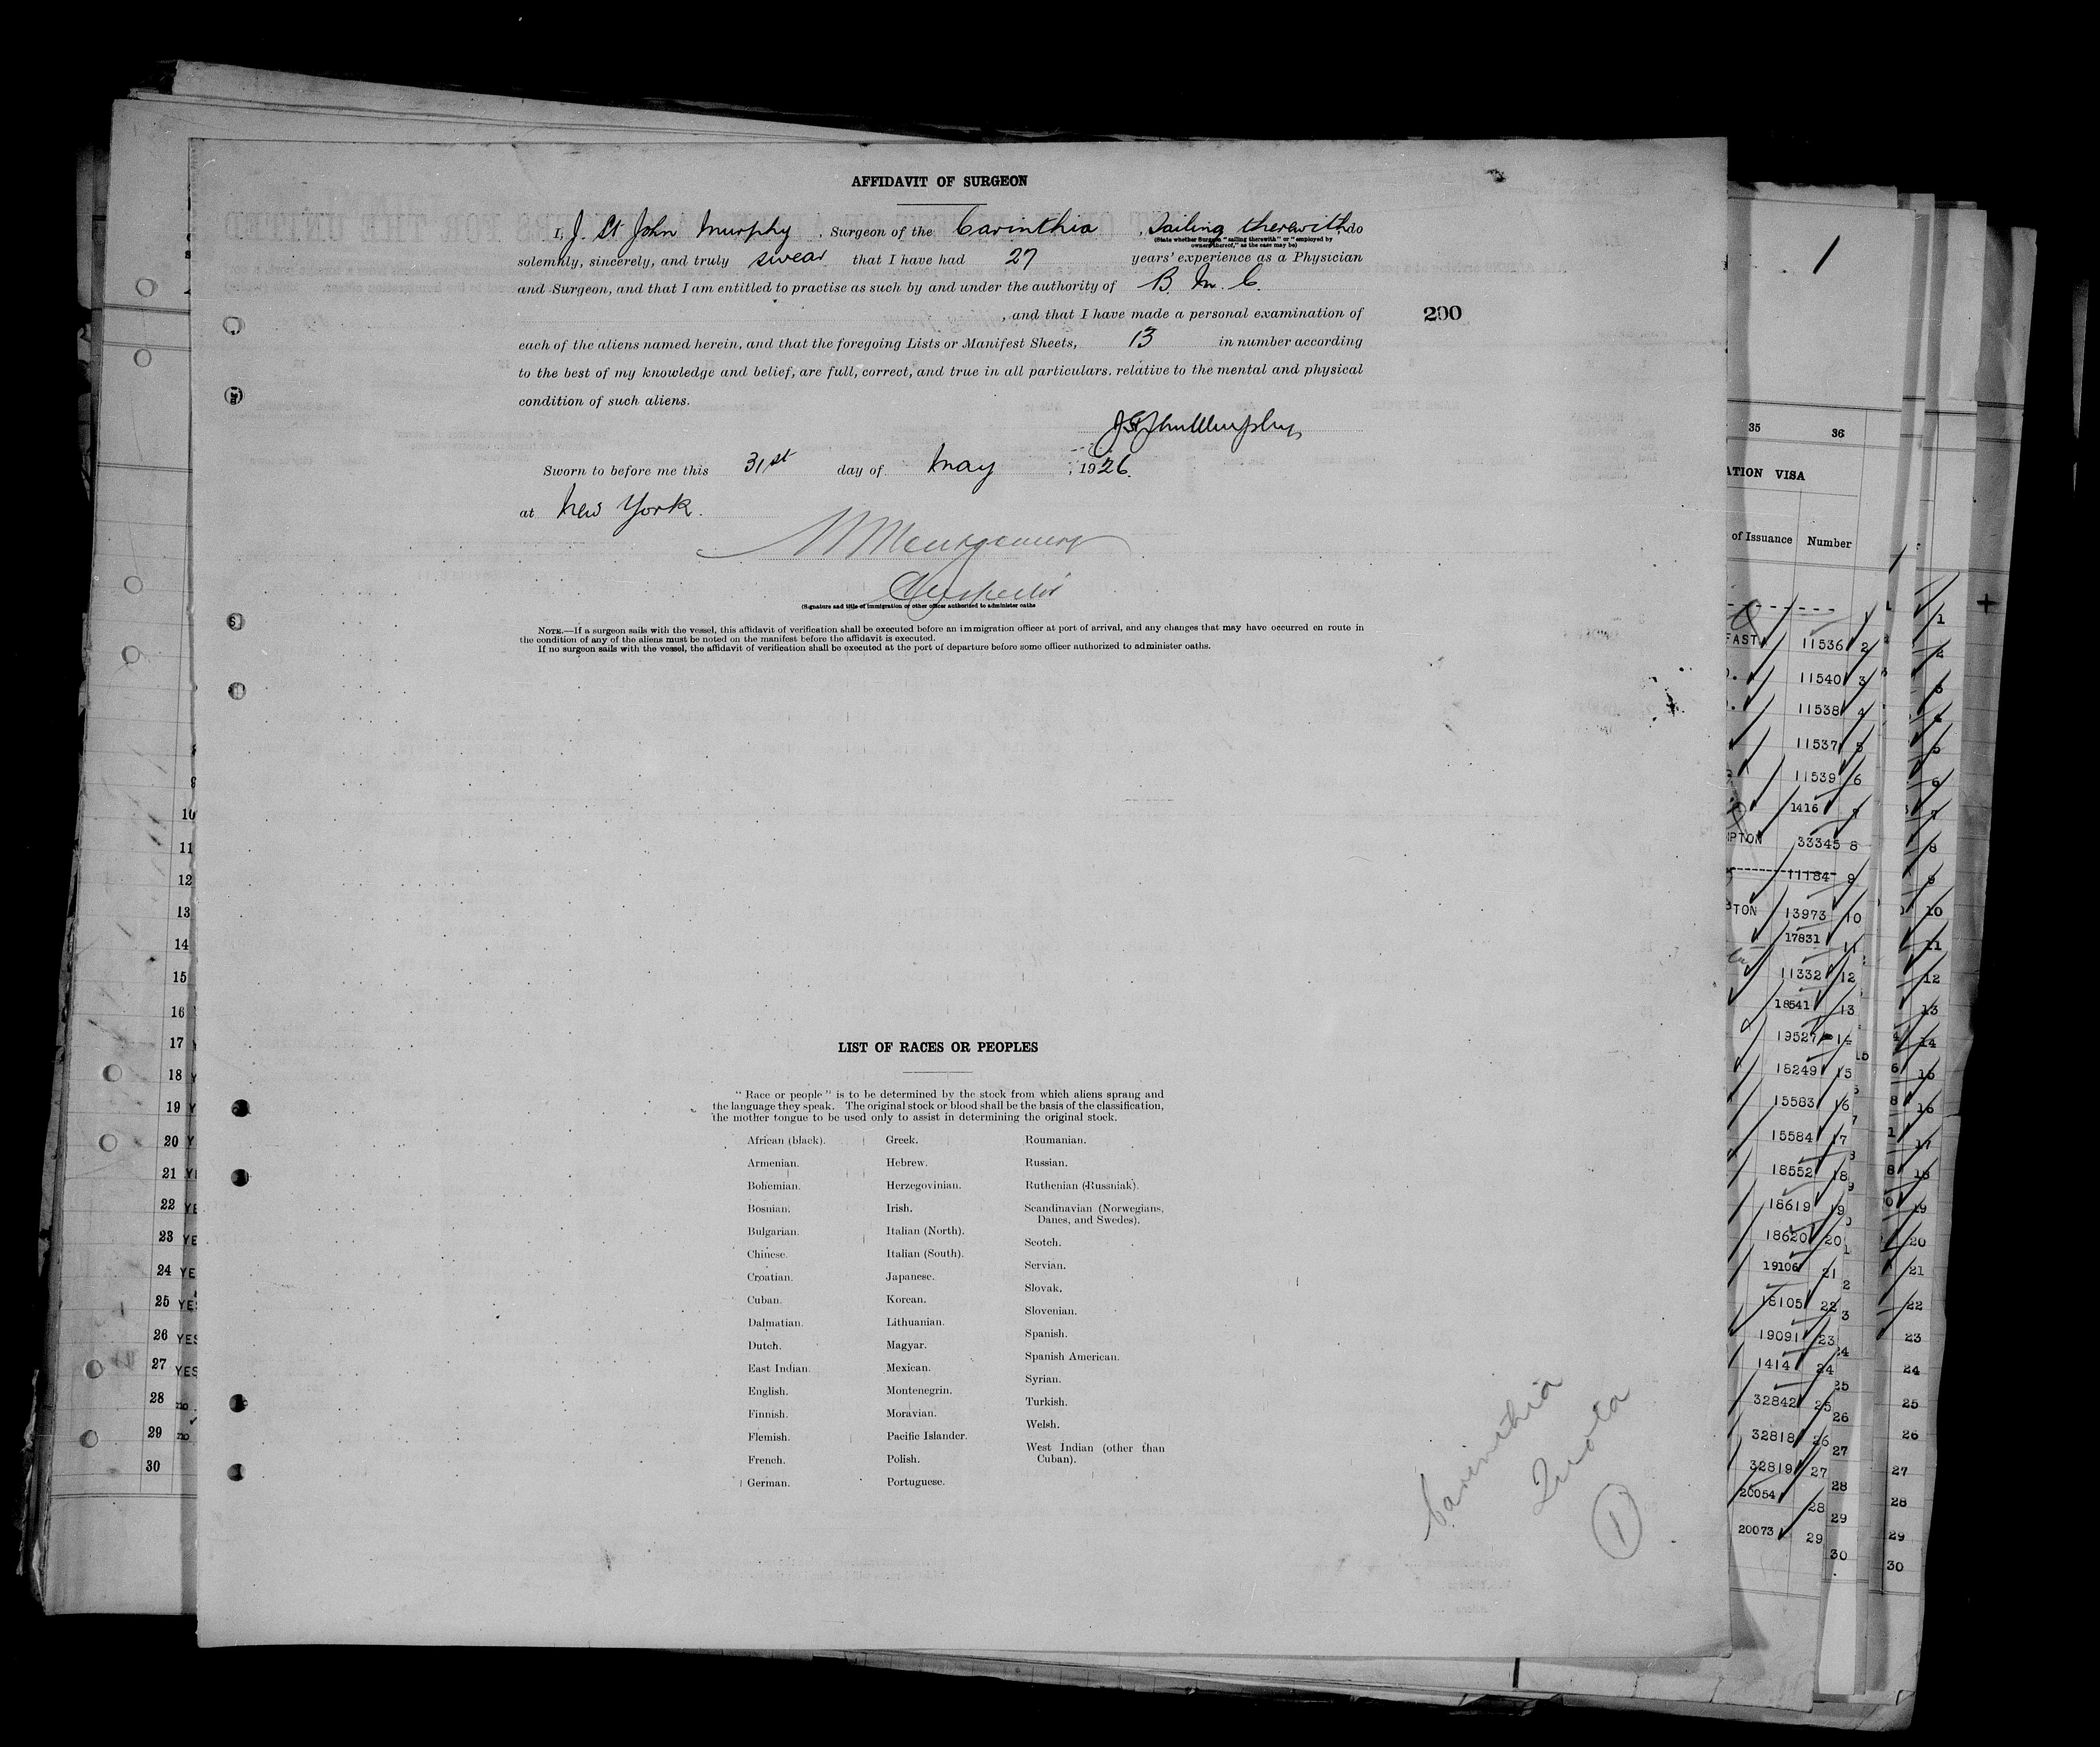 AFFIDAVIT OF SURGEON
I, J. St John Murphy, Surgeon of the Carinthia, Sailing therewith do
(State whether Surgeon "sailing therewith" or "employed by
owners thereof," as the case may be)
solemnly, sincerely, and truly swear that I have had 27 years' experience as a Physician
and Surgeon, and that I am entitled to practise as such by and under the authority of B. M. C.
, and that I have made a personal examination of
200
each of the aliens named herein, and that the foregoing Lists or Manifest Sheets, 13 in number according
to the best of my knowledge and belief, are full, correct, and true in all particulars. relative to the mental and physical
condition of such aliens.
J St John Murphy
Sworn to before me this 31st day of May, 1926.
at New York.
Montgomery
Inspector
(Signature and title of immigration or other officer authorized to administer oaths
NOTE.—If a surgeon sails with the vessel, this affidavit of verification shall be executed before an immigration officer at port of arrival, and any changes that may have occurred en route in
the condition of any of the aliens must be noted on the manifest before the affidavit is executed.
If no surgeon sails with the vessel, the affidavit of verification shall be executed at the port of departure before some officer authorized to administer oaths.
LIST OF RACES OR PEOPLES
"Race or people" is to be determined by the stock from which aliens sprang and
the language they speak. The original stock or blood shall be the basis of the classification,
the mother tongue to be used only to assist in determining the original stock.
African (black).
Armenian.
Bohemian.
Bosnian.
Bulgarian.
Chinese.
Croatian.
Cuban.
Dalmatian.
Dutch.
East Indian.
English.
Finnish.
Flemish.
French.
German.
Greek.
Hebrew.
Herzegovinian.
Irish.
Italian (North).
Italian (South).
Japanese.
Korean.
Lithuanian.
Magyar.
Mexican.
Montenegrin.
Moravian.
Pacific Islander.
Polish.
Portuguese.
Roumanian.
Russian.
Ruthenian (Russniak).
Scandinavian (Norwegians,
Danes, and Swedes).
Scotch.
Servian.
Slovak.
Slovenian.
Spanish.
Spanish American.
Syrian.
Turkish.
Welsh.
West Indian (other than
Cuban).
Carinthia
Quota
1
10
11
12
13
14
15
16
17
18
19
20
21
22
23 YE
24 YE
25 YES
26 YES
27 YES
28 no
29 no
30
1
35 36
ATION VISA
of Issuance Number
FAST 11536 2
11540 3
11538 4
11537 5
11539 6
1416 7
PTON 33345 8
11184 9
TON 13973 10
17831 11
11332 12
18541 13
19527 14
15249 15
15583 16
15584 17
18552 18
18619 19
18620 20
19106 21
18105 22
19091 23
1414 24
32842 25
32818 26
32819 27
20054 28
20073 29
30
1
2
3
4
5
6
7
8
9
10
11
12
13
14
15
16
17
18
19
20
21
22
23
24
25
26
27
28
29
30